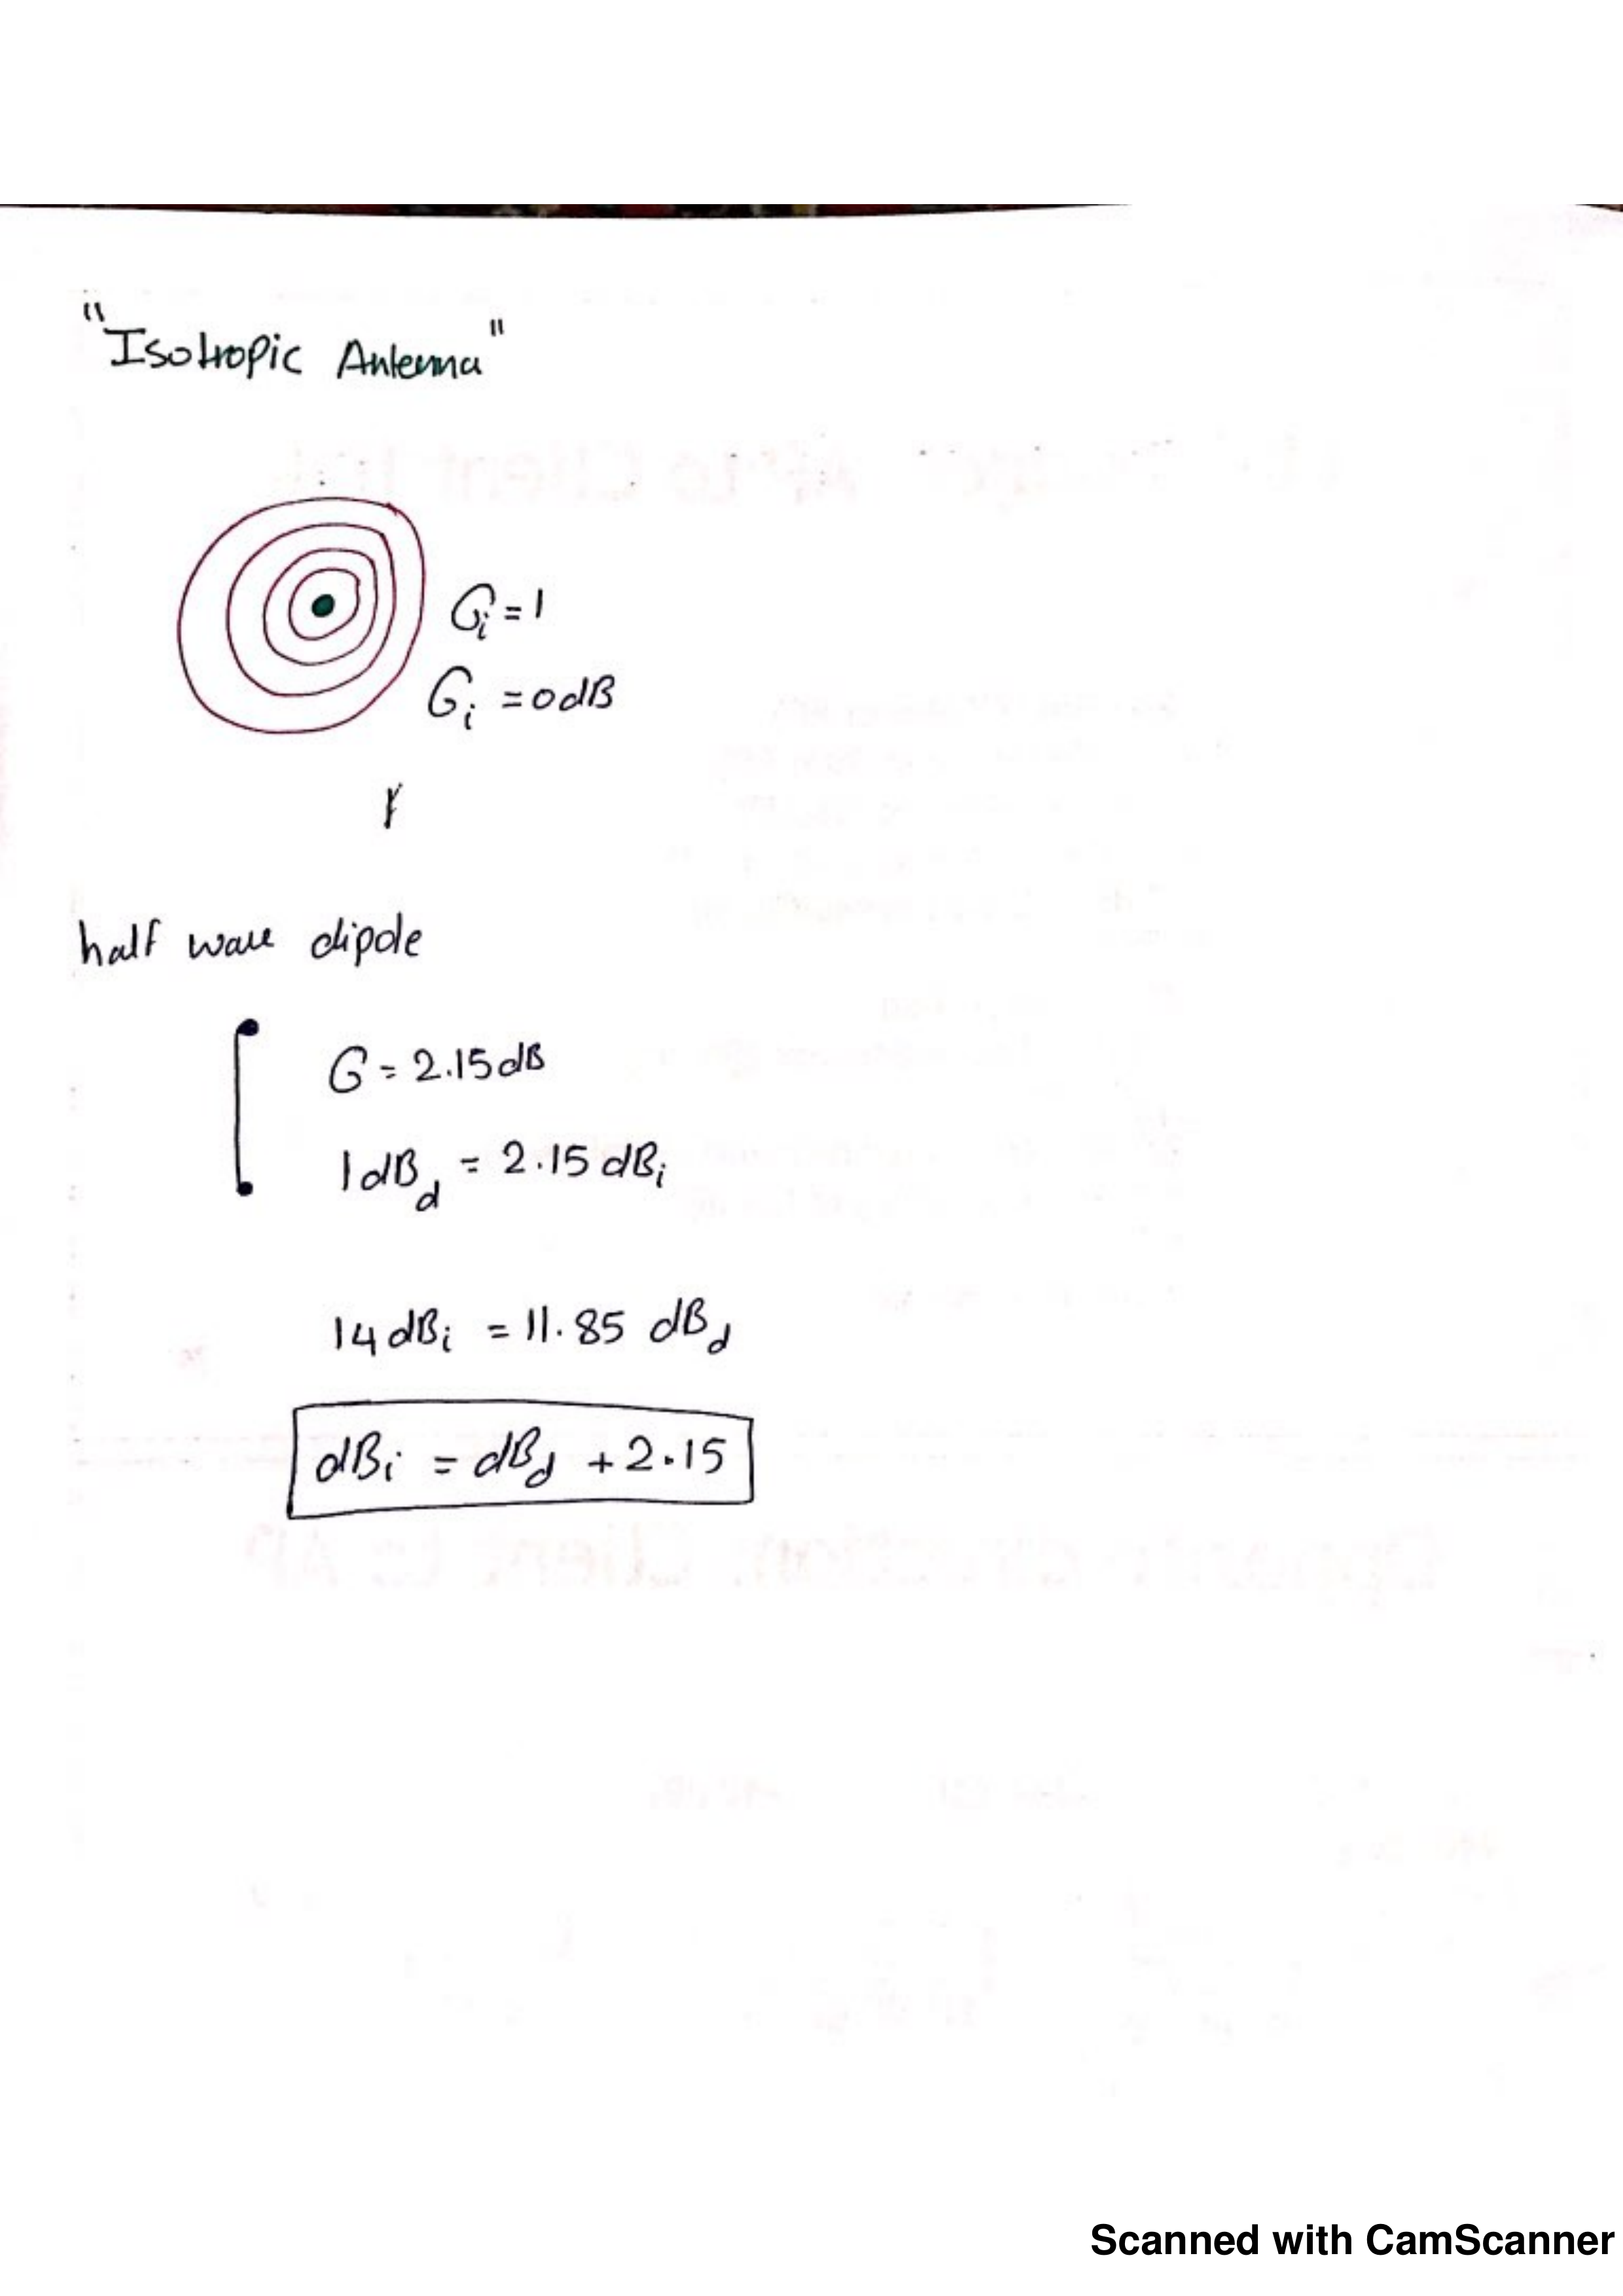 "Isotropic Antenna"
Gi = 1
Gi = 0dB
half wave dipole
G = 2.15dB
1dBd = 2.15 dBi
14dBi = 11.85 dBd
dBi = dBd + 2.15
Scanned with CamScanner